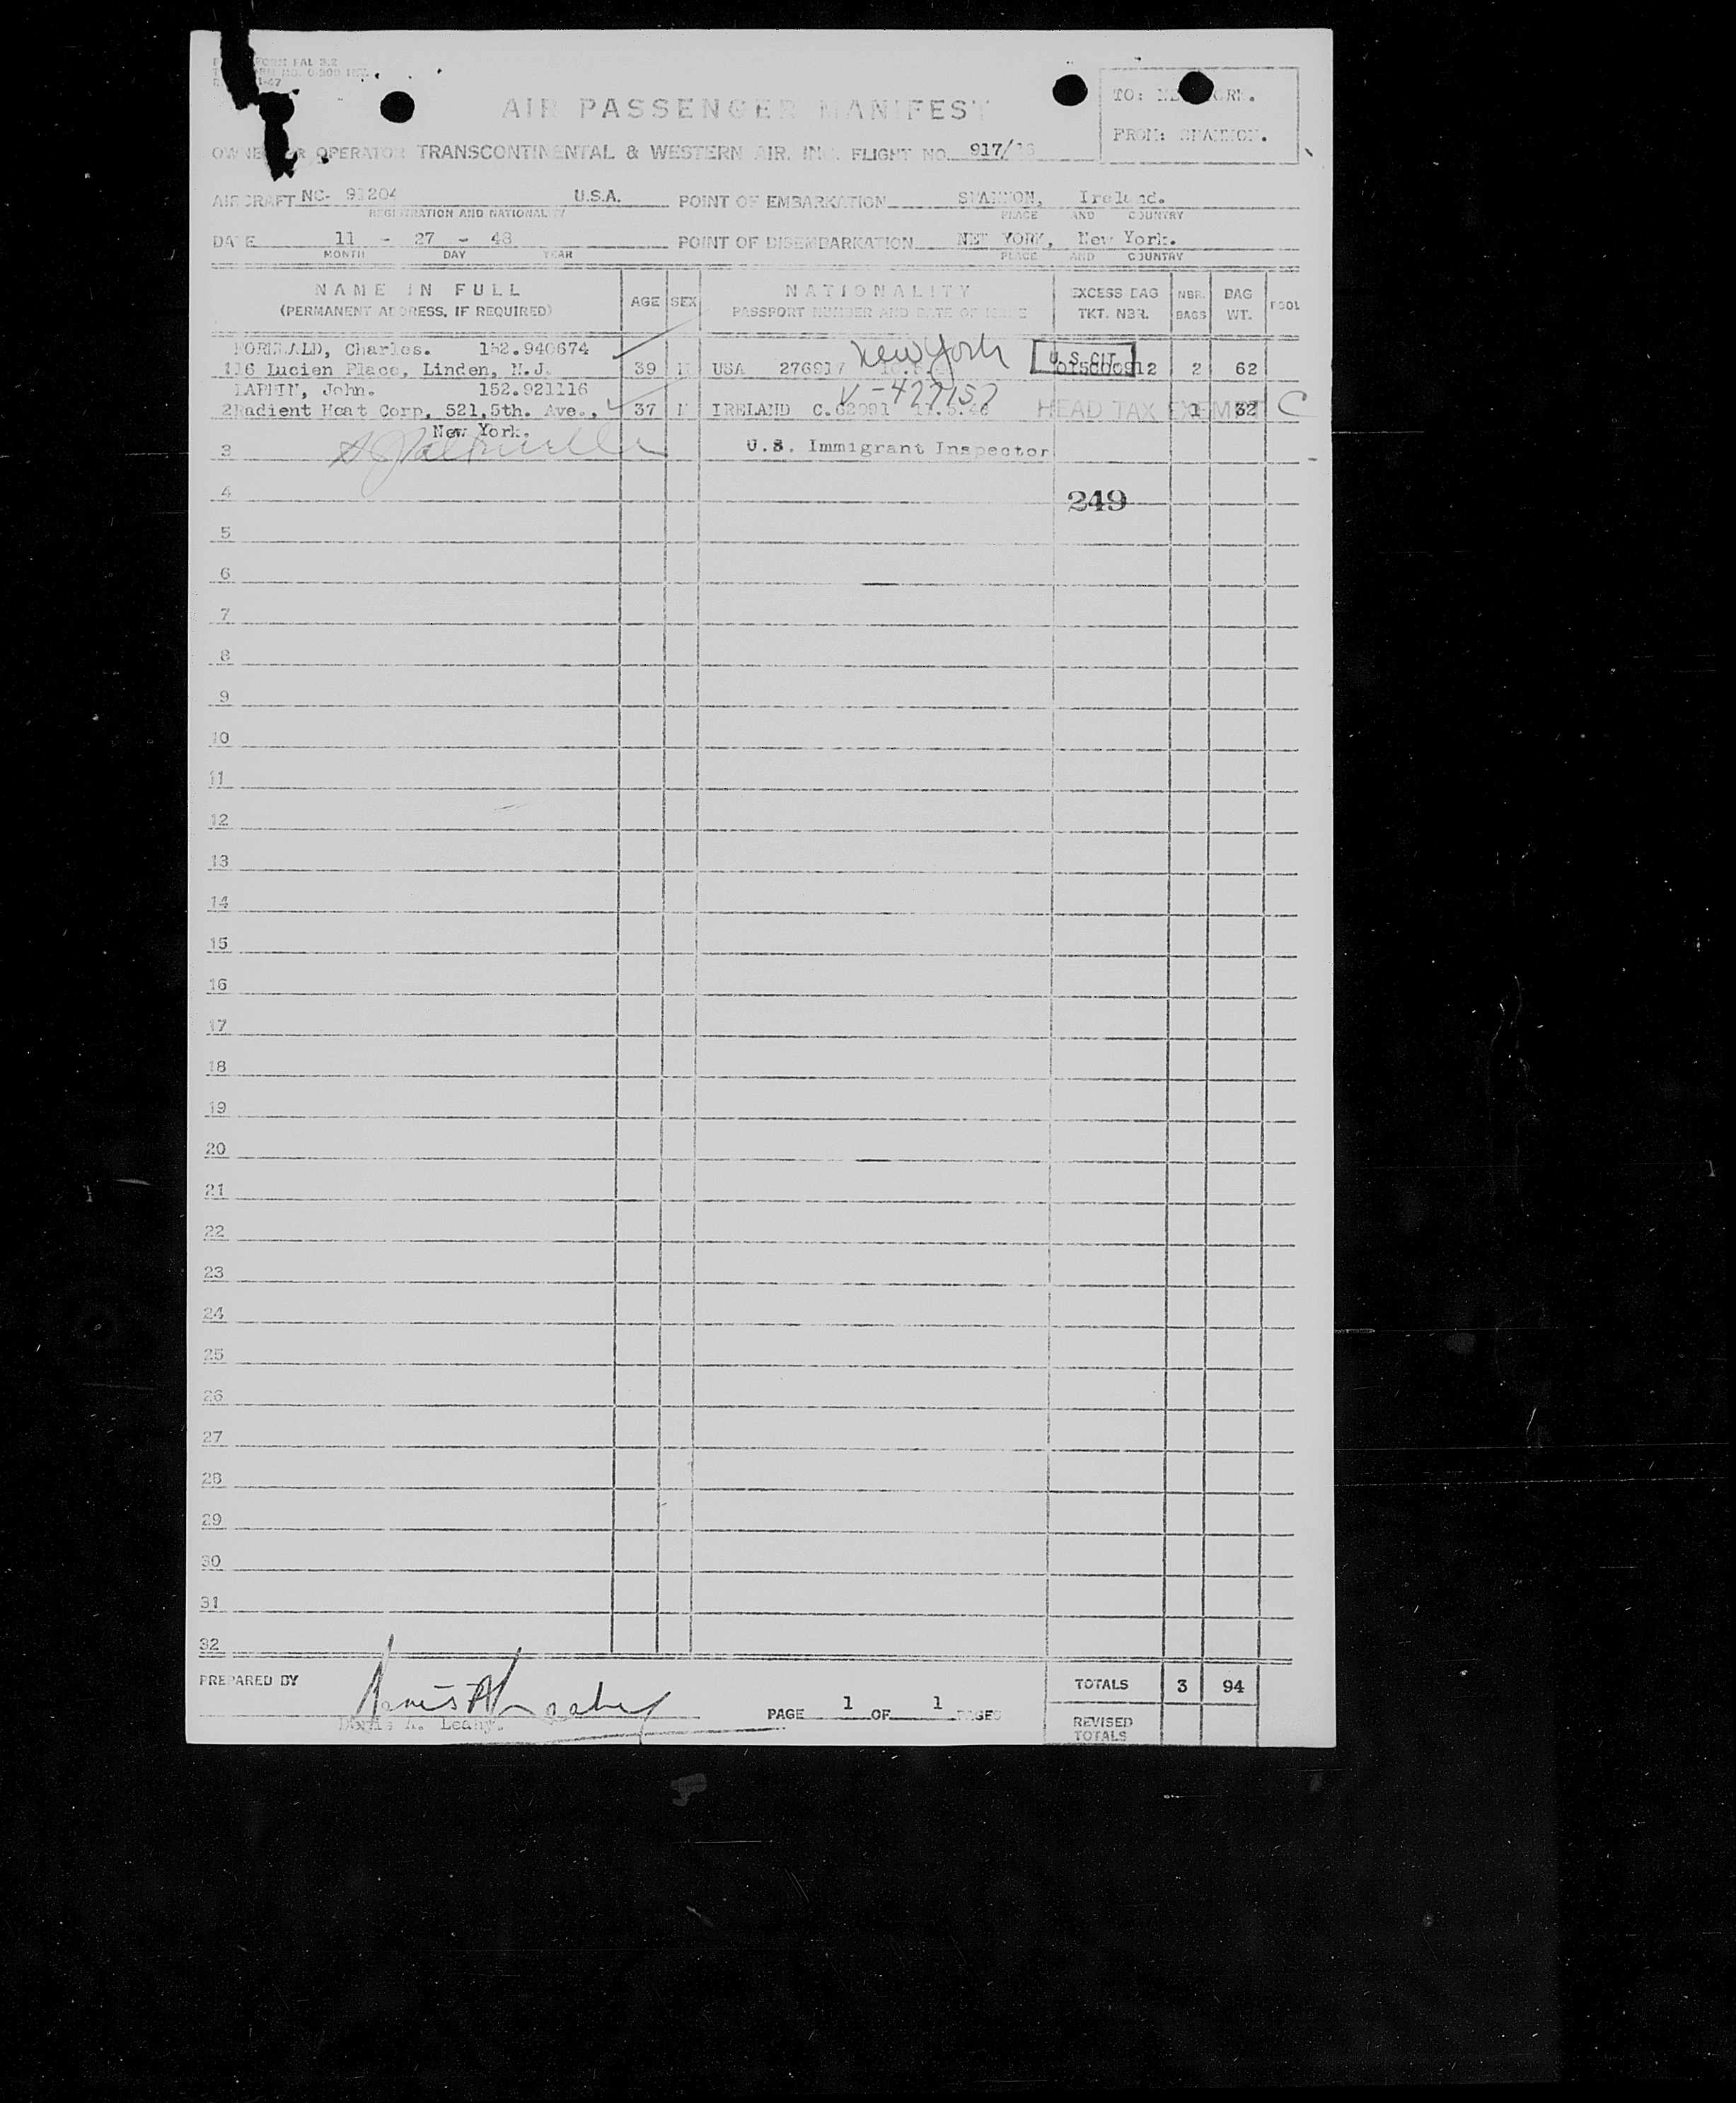 FORM FAL 3.2
AIR PASSENGER MANIFEST
TO: NEW YORK.
FROM: SHANNON.
OWNER OR OPERATOR TRANSCONTINENTAL & WESTERN AIR, INC. FLIGHT NO. 917/
AIRCRAFT NC- 91204 U.S.A. POINT OF EMBARKATION SHANNON, Ireland.
REGISTRATION AND NATIONALITY PLACE AND COUNTRY
DATE 11 - 27 - 48 POINT OF DISEMBARKATION NEW YORK, New York.
MONTH DAY YEAR PLACE AND COUNTRY
NAME IN FULL AGE SEX NATIONALITY EXCESS BAG NBR. BAG POOL
(PERMANENT ADDRESS, IF REQUIRED) PASSPORT NUMBER AND DATE OF ISSUE TKT. NBR. BAGS WT.
Charles. 152.940674 New York U.S. CIT.
116 Lucien Place, Linden, N.J. 39 M USA 276917 015000912 2 62
John. 152.921116 V-477157
2 Radient Heat Corp, 521,5th. Ave., 37 M IRELAND HEAD TAX EXEMPT 1 32 C
New York.
3 U.S. Immigrant Inspector
4 249
5
6
7
8
9
10
11
12
13
14
15
16
17
18
19
20
21
22
23
24
25
26
27
28
29
30
31
32
PREPARED BY TOTALS 3 94
PAGE 1 OF 1 PAGES
A. Leahy. REVISED
TOTALS